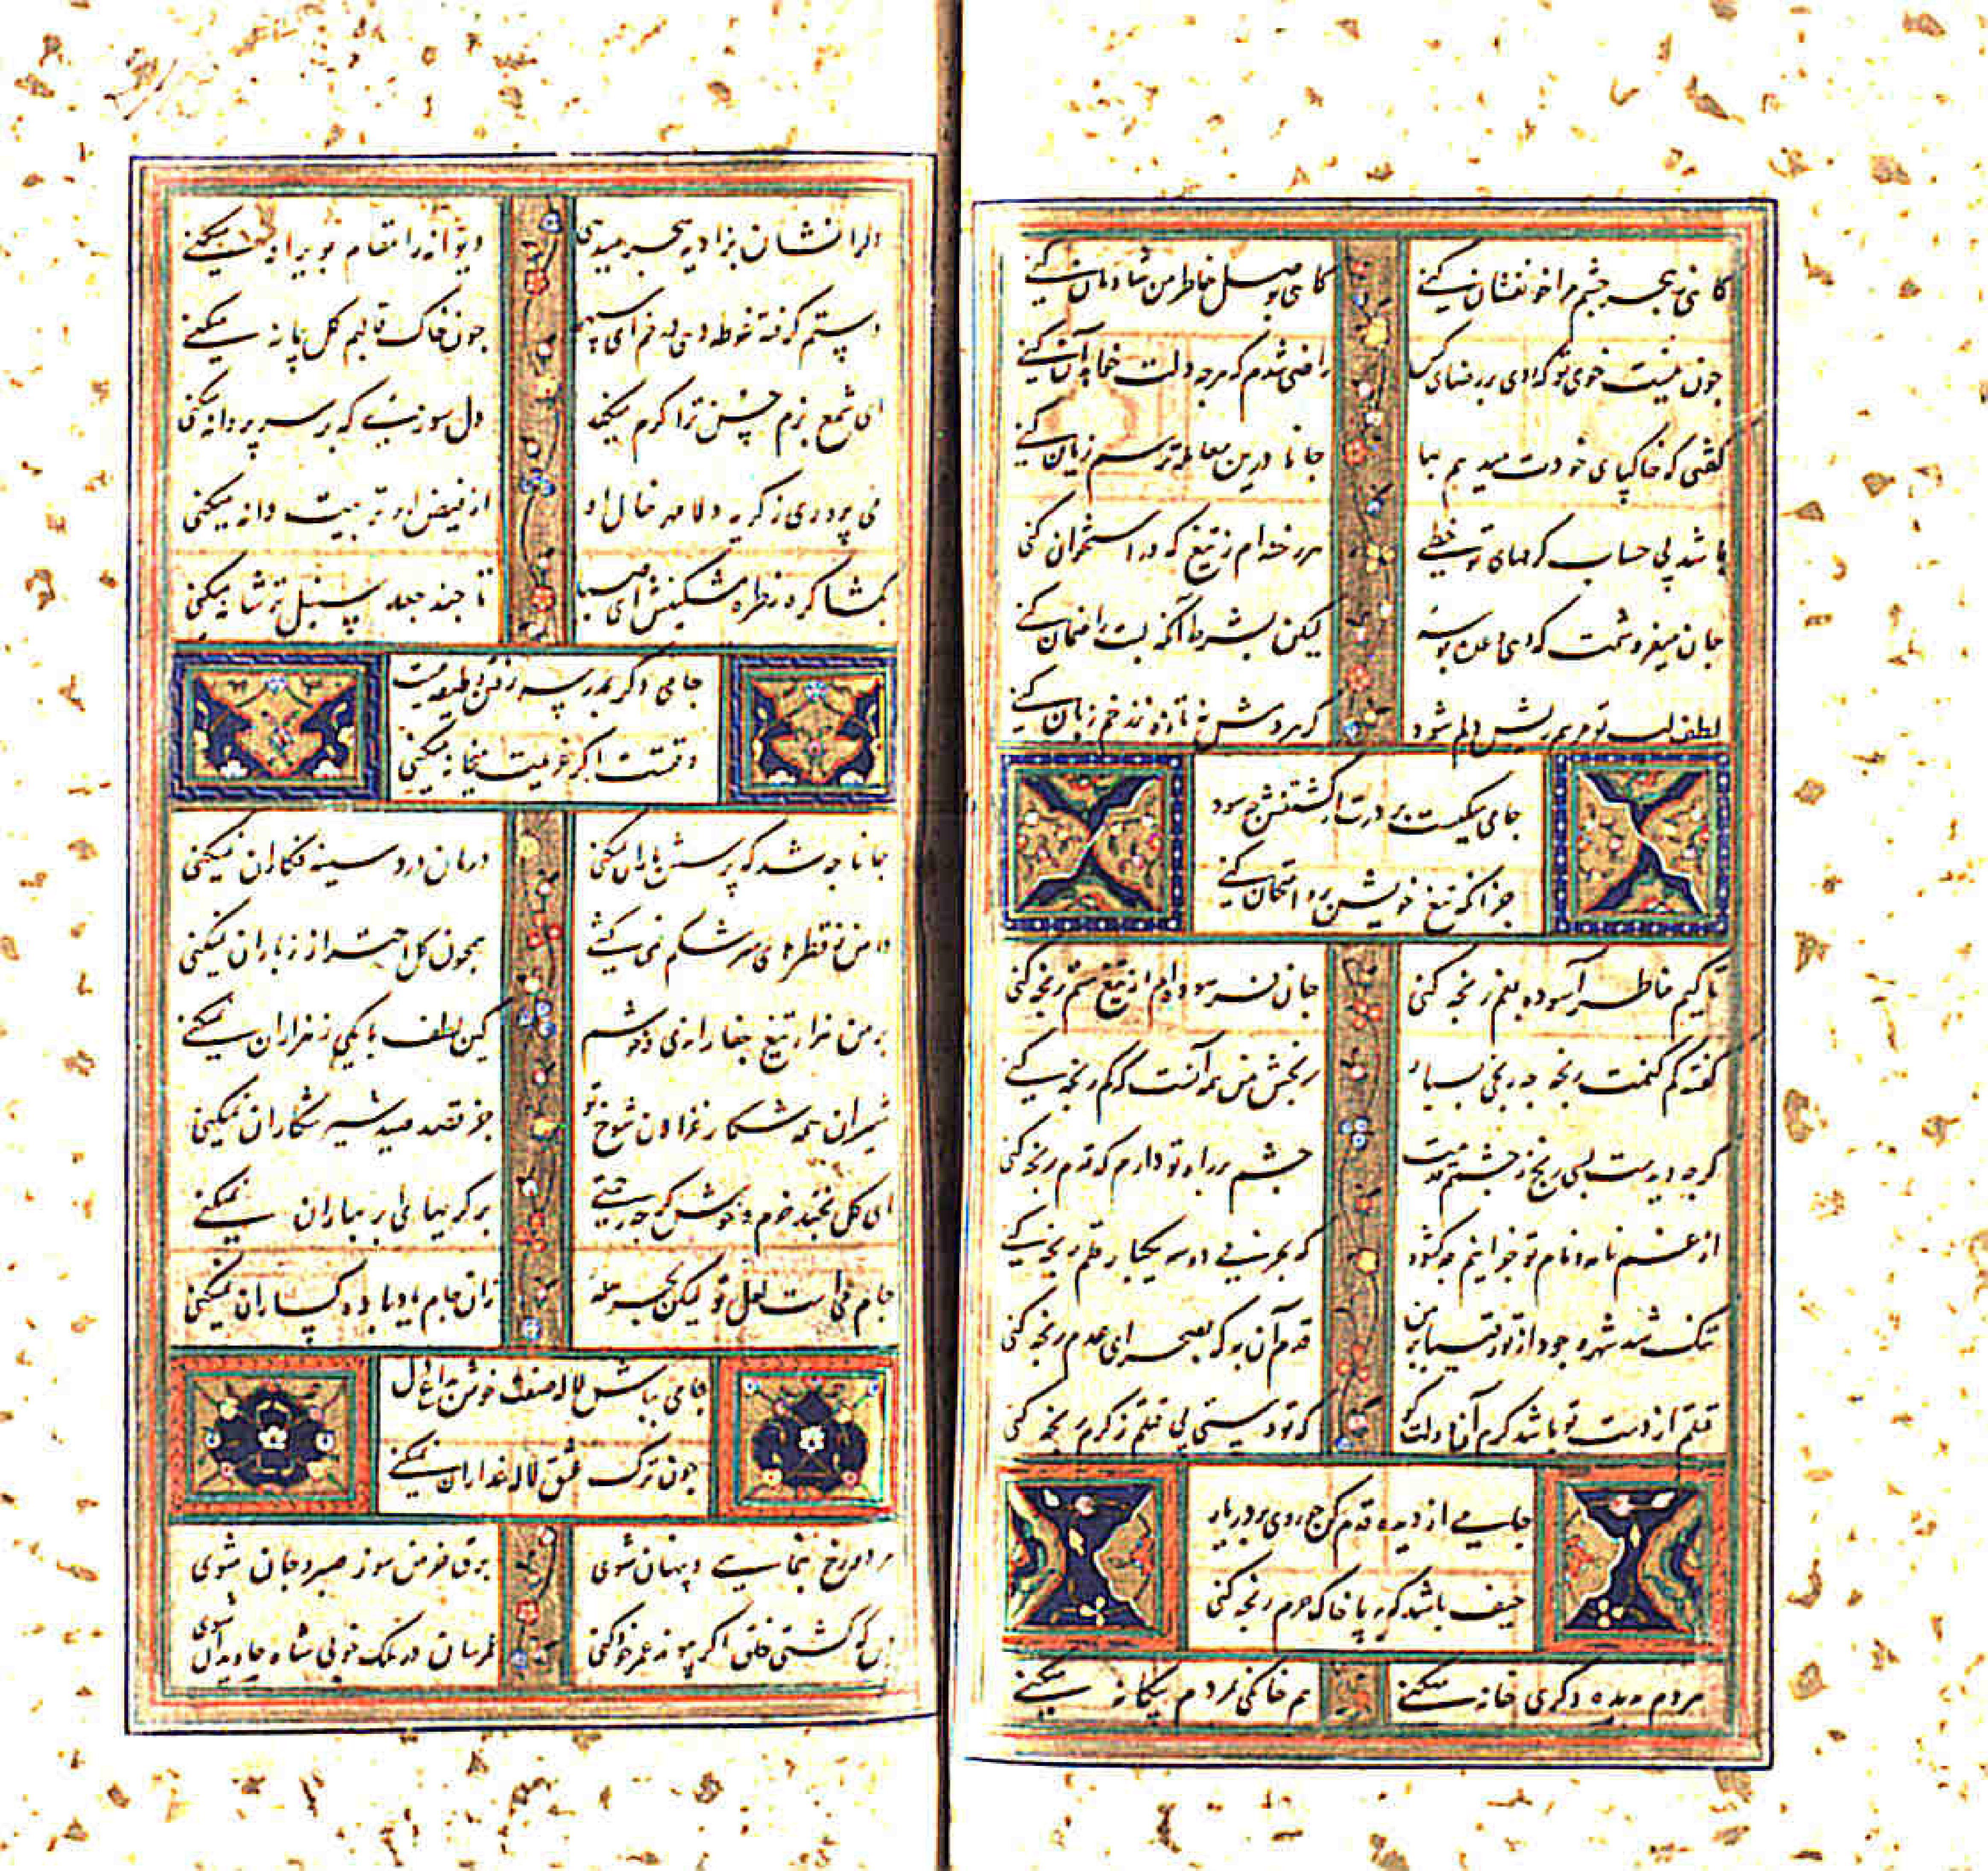 گاهی بهجر چشم مرا خونفشان کنی گاهی بوصل خاطر من شادمان کنی
چون نیست خوی تو که روی بر رضای کس راضی شدم که هرچه دلت خواهد آن کنی
گفتی که خاکپای خودت میدهم بها جانا درین معامله ترسم زیان کنی
باشد پی حساب کرمهای تو خطی هر رخنه ام ز تیغ که در استخوان کنی
جان میفروشمت که دهی وعده بوسه لیکن بشرط آنکه لبت را ضمان کنی
لطف لب تو مرهم ریش دلم شود گر هردمش نه تازه بزخم زبان کنی
جامی سگیست بر درت از کشتنش چه سود
جز آنکه تیغ خویش برو امتحان کنی
تا کیم خاطر آسوده بغم رنجه کنی جان فرسوده ام از تیغ ستم رنجه کنی
گفته کم کنمت رنجه چه رنجی بسیار رنجش من همه آنست که کم رنجه کنی
گرچه دیدست بسی رنج ز چشم قدمت چشم بر راه تو دارم که قدم رنجه کنی
از غم نامه و نام تو چو اینم چه شود که بحرفی دو سه یکبار قلم رنجه کنی
تنگ شد شهر وجود از تو رقیبا بر من قدم آن به که بصحرای عدم رنجه کنی
قتلم از دست تو باشد کرم آن دولت کو که تو دستی پی قتلم ز کرم رنجه کنی
جامی از دیده قدم کن چو روی بر در یار
حیف باشد که بپا خاک حرم رنجه کنی
مردم دیده دگری خانه میکنی هم خانگی بمردم بیگانه میکنی
دلرا نشان بزاویه هجر میدهی دیوانه را مقام بویرانه میکنی
دستم گرفته غوطه دهی در می ای سپهر چون خاک قالبم گل پیمانه میکنی
ای شمع بزم حسن ترا گرم میکند دل سوزیی که بر سر پروانه میکنی
می پروری ز گریه دلا مهر خال او از فیض ابر تربیت دانه میکنی
بگشا گره ز طره مشکینش ای صبا تا چند جعد سنبل تر شانه میکنی
جامی دگر بمدرسه رفتن وظیفه نیست
وقتست اگر عزیمت میخانه میکنی
جانا چه شد که پرسش یاران نمیکنی درمان درد سینه فگاران نمیکنی
دامن ز قطرهای سرشکم نمی کشی همچون گل احتراز ز باران نمیکنی
بر من هزار تیغ جفا راندی و خوشم کین لطف با یکی ز هزاران نمیکنی
شیران همه شکار غزالان شوخ تو جز قصد صید شیر شکاران نمیکنی
ای گل بخند خرم و خوش گرچه رحمتی بر گریهای ابر بهاران نمیکنی
جام می است لعل تو لیکن بجرعه زان جام یاد باده گساران نمیکنی
جامی بباش لاله صفت خوش بداغ دل
چون ترک عشق لاله عذاران نمیکنی
هر دم رخ بنمایی و پنهان شوی برق خرمن سوز صبر و جان شوی
کشتی خلق اگر چو نه عمر خواکنی عمرسان در ملک خوبی شاه جاویدان شوی